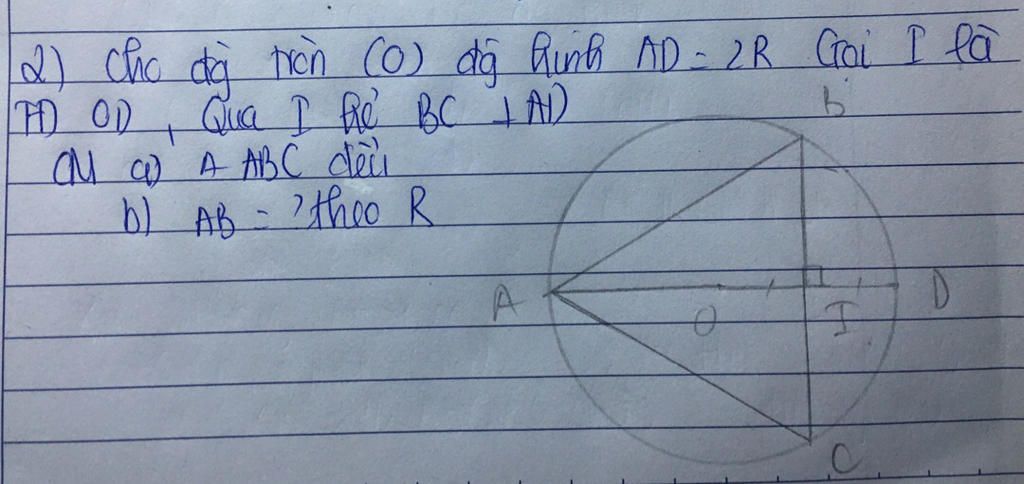 2) Cho đg tròn (O) đg kính AD = 2R Gọi I là
TĐ OD, Qua I kẻ BC ⊥ AD
CM a) Δ ABC đều
b) AB = ? theo R
B
A
O
I
D
C